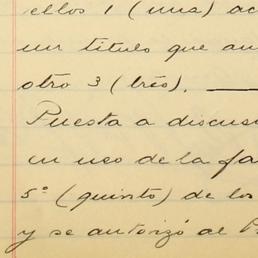 ellos 1 (una) ac
un titulo que au
otro 3 (trés). ———
Puesta a discus
en uso de la fa
5º (quinto) de los
y se autorizó al P